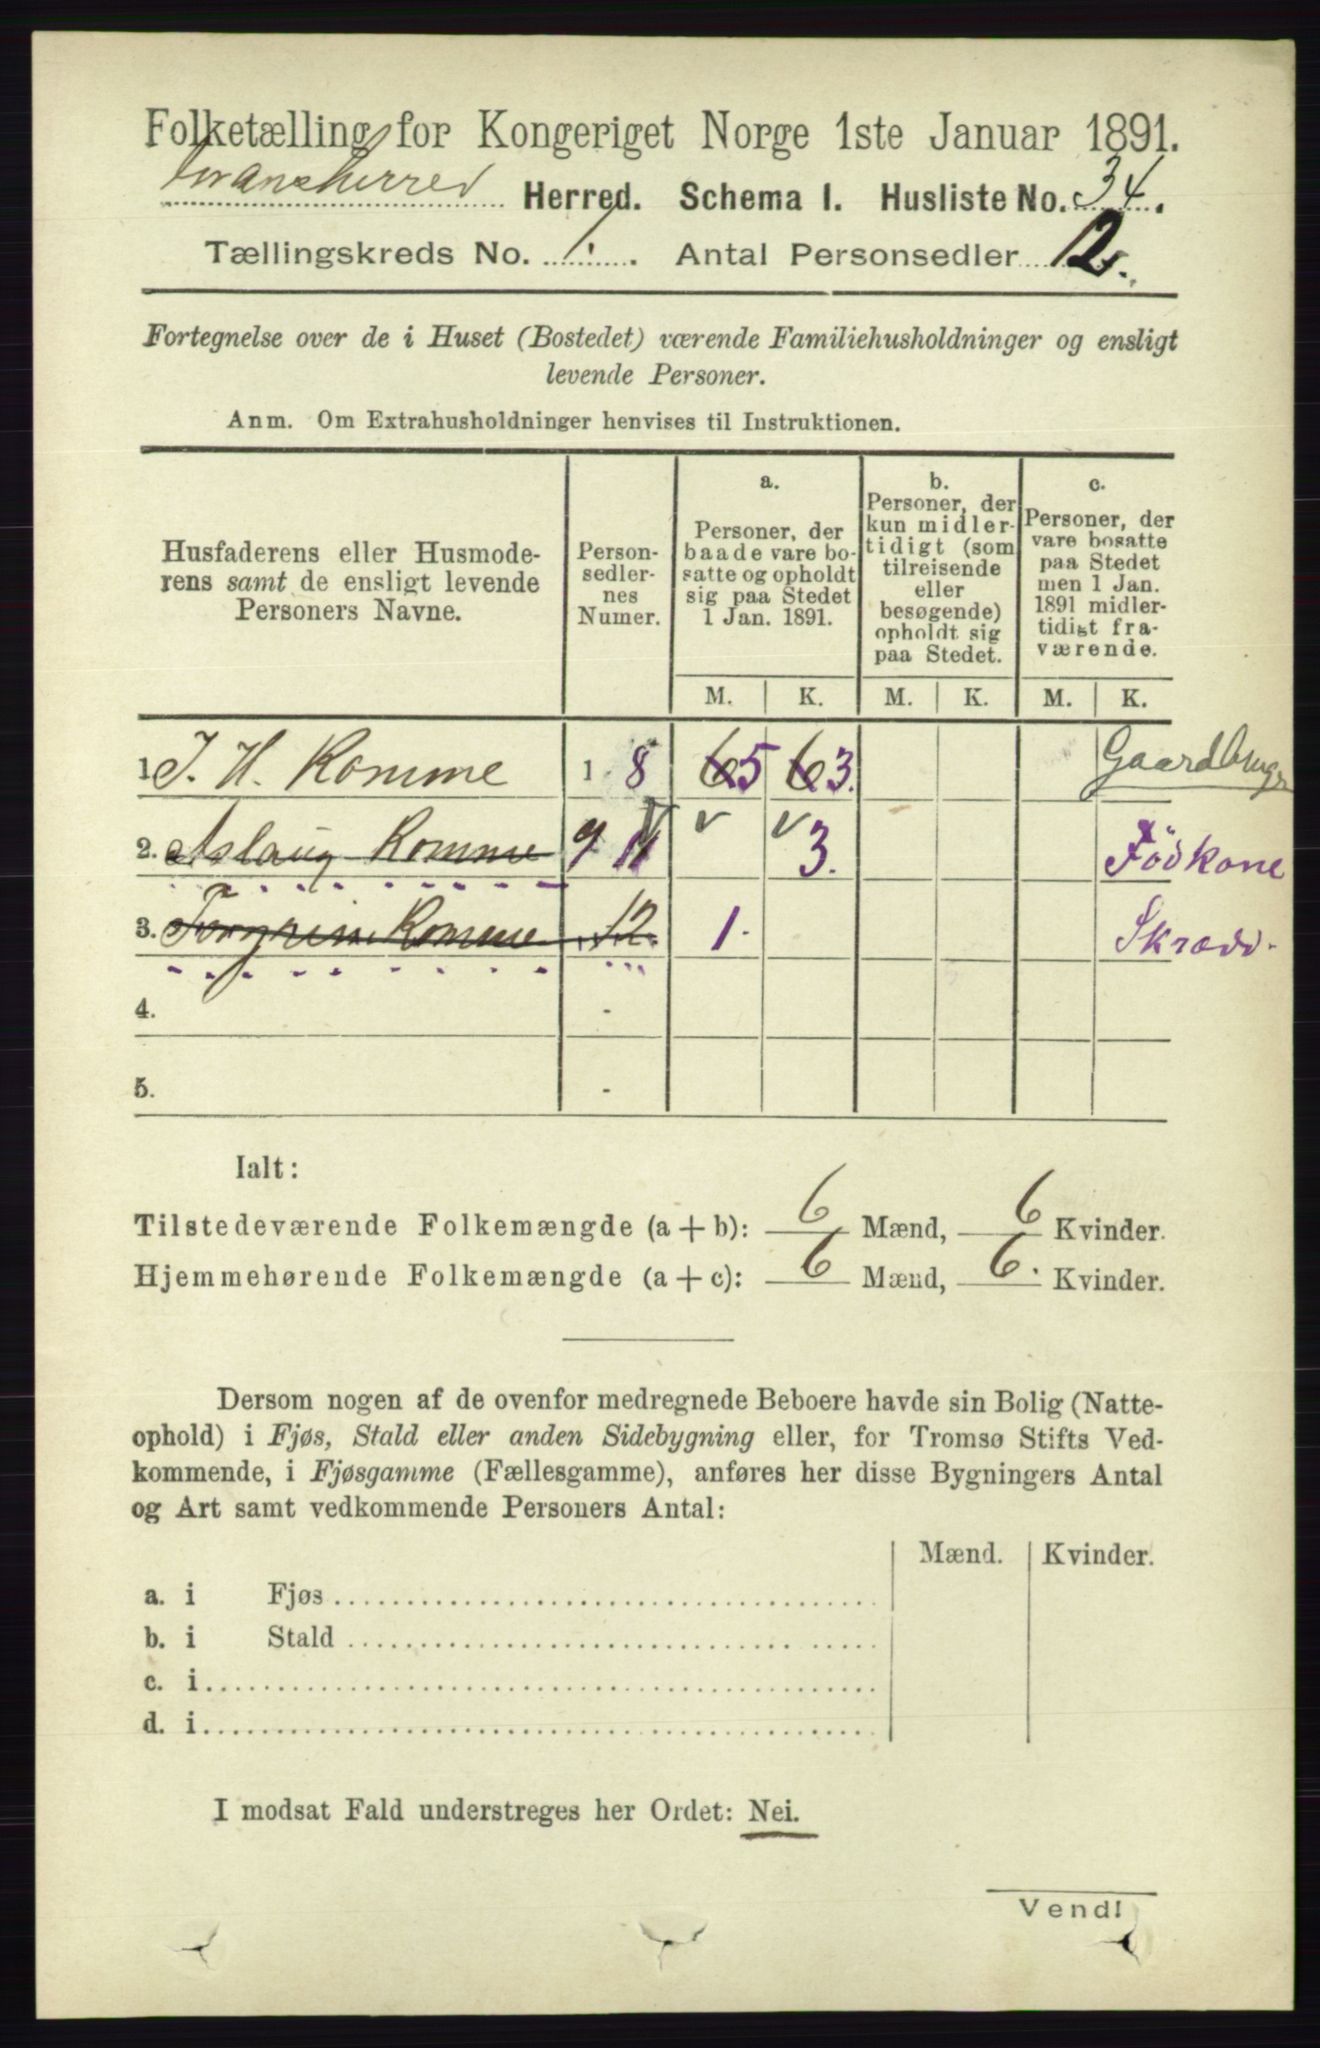 Folketælling for Kongeriget Norge 1ste Januar 1891.
Gransherred Herred. Schema I. Husliste No. 34.
Tællingskreds No. 7. Antal Personsedler 12.
Fortegnelse over de i Huset (Bostedet) værende Familiehusholdninger og ensligt
levende Personer.
Anm. Om Extrahusholdninger henvises til Instruktionen.
Husfaderens eller Husmode-
rens samt de ensligt levende
Personers Navne.
Person-
sedler-
nes
Numer.
a.
Personer, der
baade vare bo-
satte og opholdt
sig paa Stedet
1 Jan. 1891.
b.
Personer, der
kun midler-
tidigt (som
tilreisende
eller
besøgende)
opholdt sig
paa Stedet.
c.
Personer, der
vare bosatte
paa Stedet
men 1 Jan.
1891 midler-
tidigt fra-
værende.
M. K. M. K. M. K.
1. J. H. Romme 1 - 8 6 5 6 3. Gaardbruger
2. Aslaug Romme 9 11 v v 3. Födkone
3. Torgrim Romme 12. 1. Skrædd.
4. -
5. -
Ialt:
Tilstedeværende Folkemængde (a + b): 6 Mænd, 6 Kvinder.
Hjemmehørende Folkemængde (a + c): 6 Mænd, 6. Kvinder.
Dersom nogen af de ovenfor medregnede Beboere havde sin Bolig (Natte-
ophold) i Fjøs, Stald eller anden Sidebygning eller, for Tromsø Stifts Ved-
kommende, i Fjøsgamme (Fællesgamme), anføres her disse Bygningers Antal
og Art samt vedkommende Personers Antal:
Mænd. Kvinder.
a. i Fjøs
b. i Stald
c. i
d. i
I modsat Fald understreges her Ordet: Nei.
Vend!